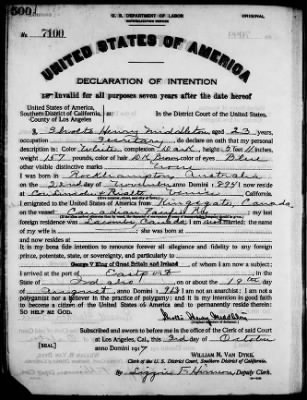 U. S. DEPARTMENT OF LABOR
ORIGINAL
No. 7100
UNITED STATES OF AMERICA
DECLARATION OF INTENTION
Invalid for all purposes seven years after the date hereof
United States of America,
Southern District of California,
County of Los Angeles
In the District Court of the United States.
I, Henry Middleton, aged 23 years,
occupation Secretary, do declare on oath that my personal
description is: Color White, complexion Dark, height 5 feet inches,
weight 157 pounds, color of hair Dk Brown, color of eyes Blue
other visible distinctive marks None
I was born in Rockhampton Australia
on the day of November, anno Domini 1894; I now reside
at Venice, California.
I emigrated to the United States of America from Canada
on the vessel Canadian ; my last
foreign residence was Canada; I am married; the name
of my wife is ; she was born at
and now resides at
It is my bona fide intention to renounce forever all allegiance and fidelity to any foreign
prince, potentate, state, or sovereignty, and particularly to
George V King of Great Britain and Ireland, of whom I am now a subject;
I arrived at the port of Eastport, in the
State of Idaho, on or about the day
of August, anno Domini 19; I am not an anarchist; I am not a
polygamist nor a believer in the practice of polygamy; and it is my intention in good faith
to become a citizen of the United States of America and to permanently reside therein:
SO HELP ME GOD.
Subscribed and sworn to before me in the office of the Clerk of said Court
at Los Angeles, Cal., this 3rd day of October
anno Domini 1917
[SEAL]
WILLIAM M. VAN DYKE,
Clerk of the U. S. District Court, Southern District of California.
By , Deputy Clerk.